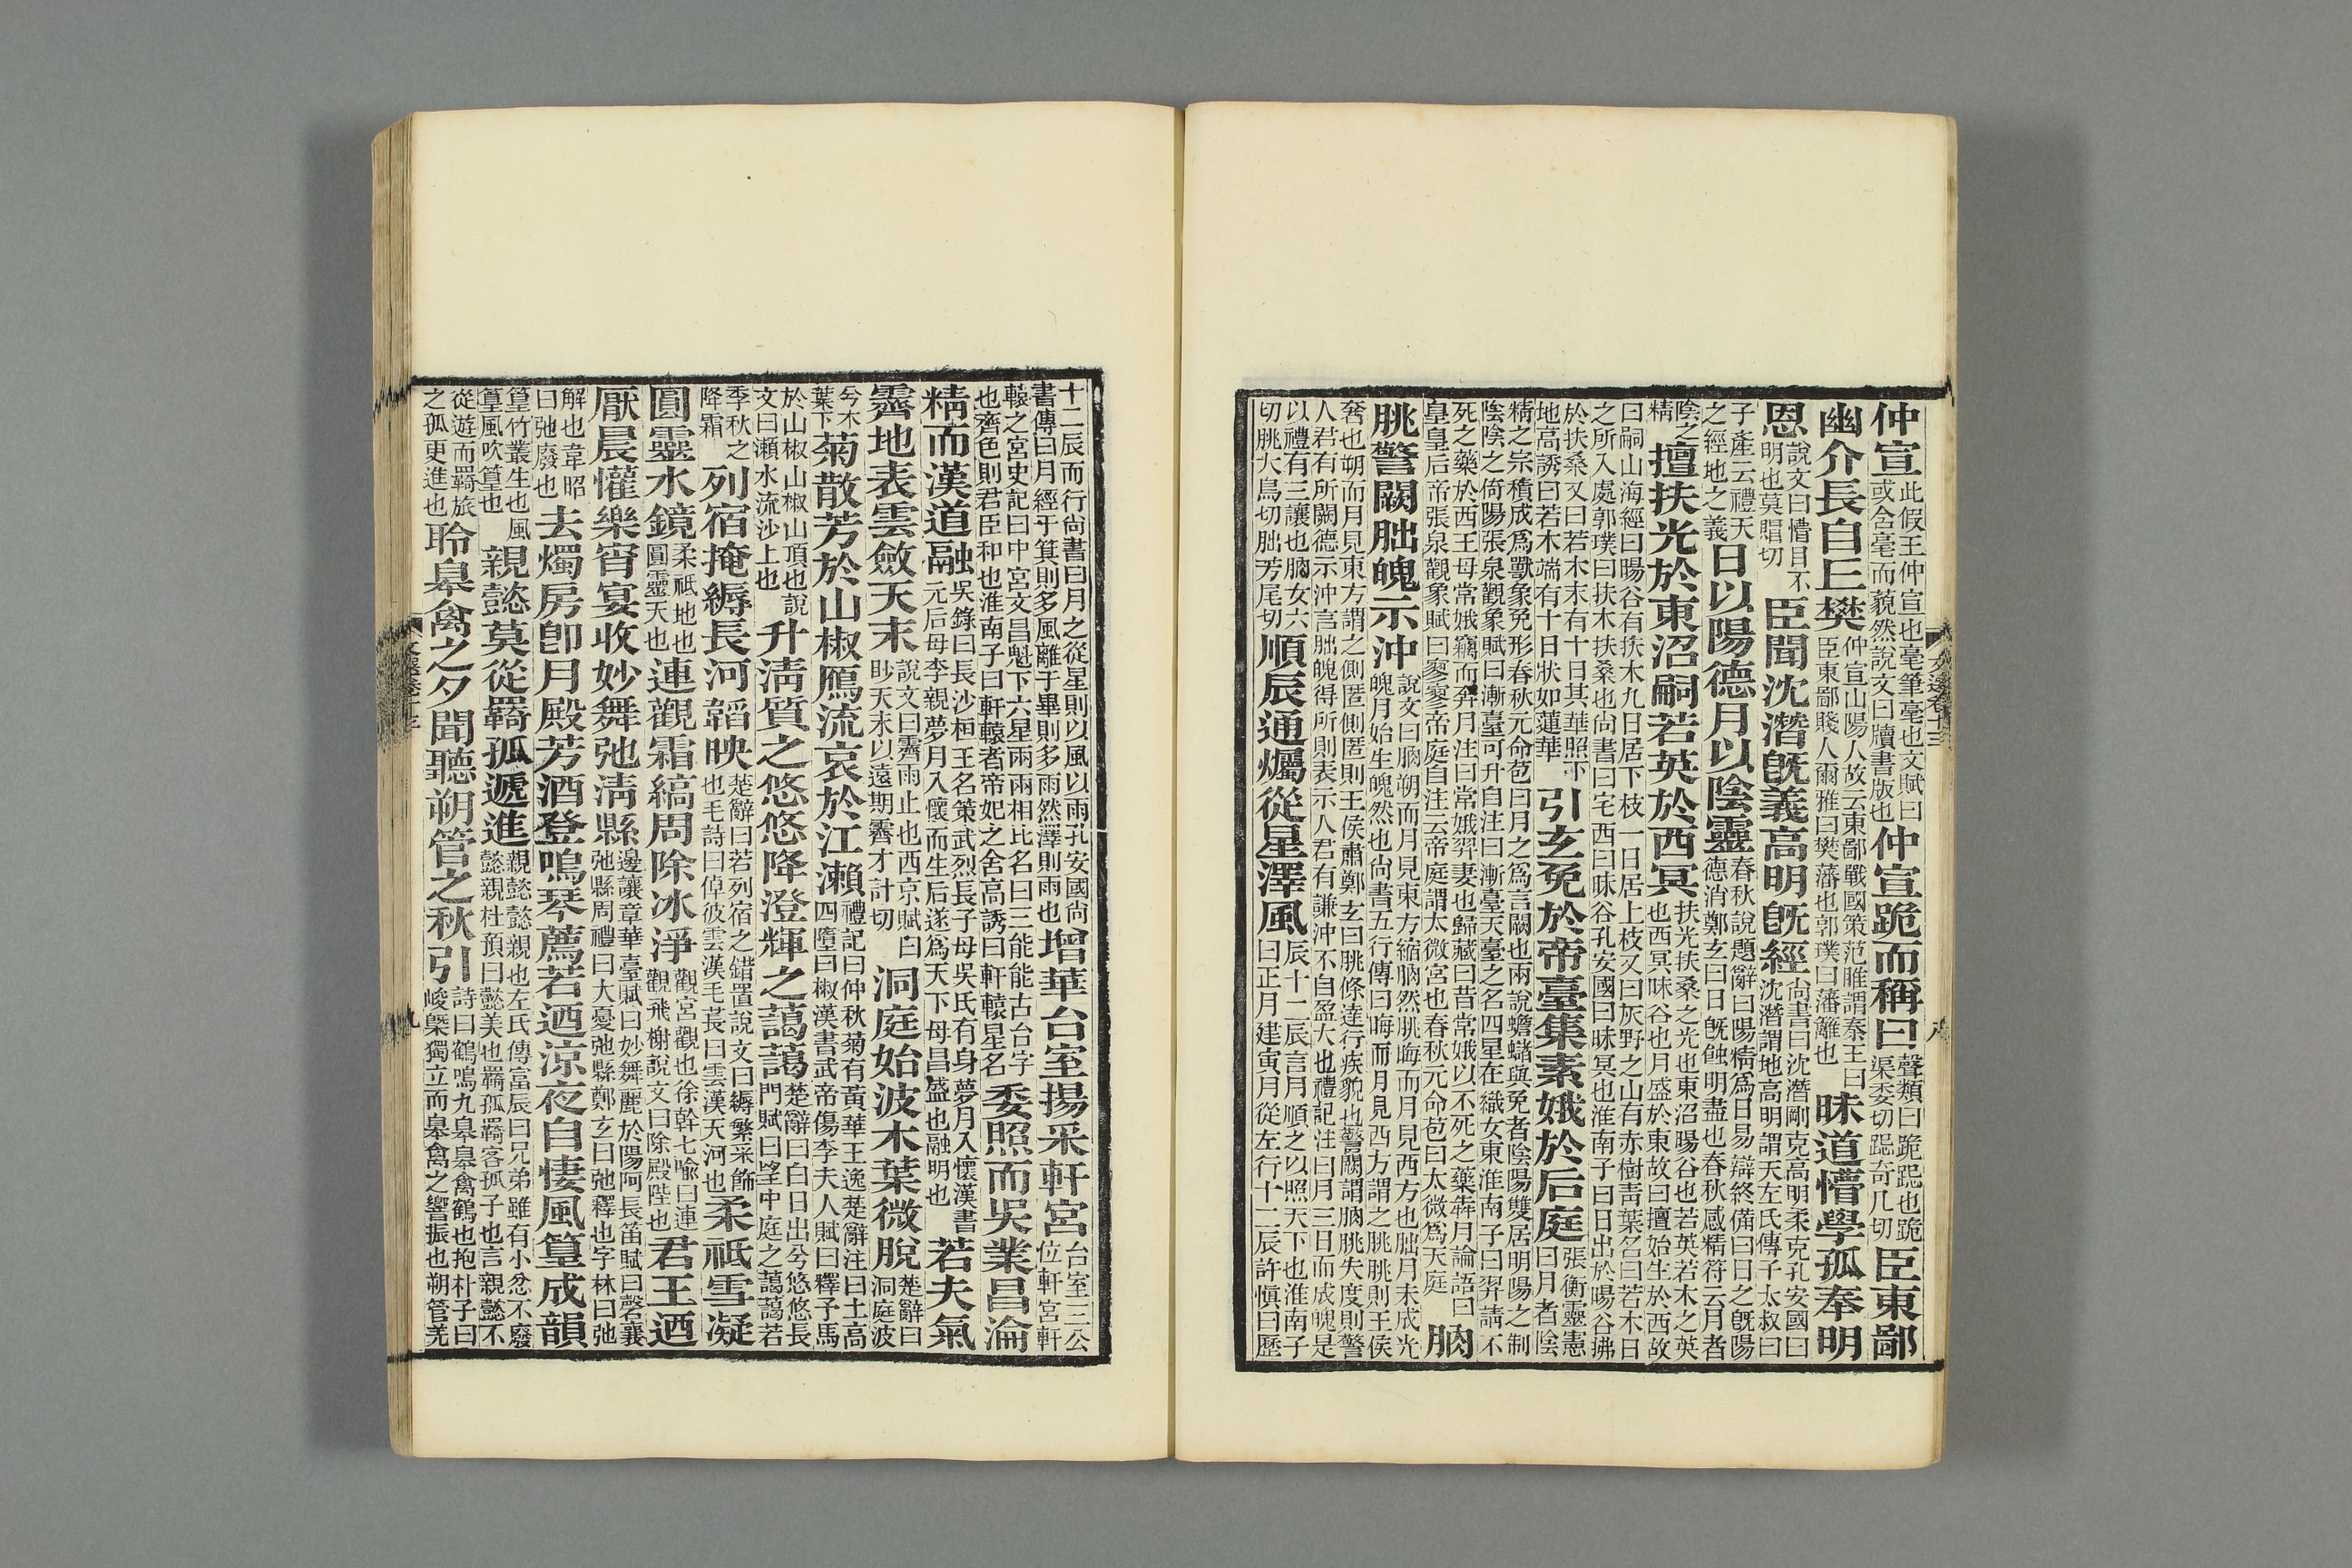 仲宣此假王仲宣也毫筆毫也文賦曰或含毫而藐然說文曰牘書版也仲宣跪而稱曰聲類曰跪跽也跪渠委切跽奇几切臣東鄙
幽介長自丘樊仲宣山陽人故云東鄙戰國策范雎謂秦王曰臣東鄙賤人爾雅曰樊藩也郭璞曰藩籬也昧道懵學孤奉明
恩說文曰懵目不明也莫贈切臣聞沈潛旣義高明旣經尚書曰沈潛剛克高明柔克孔安國曰沈潛謂地高明謂天左氏傳子太叔曰
子產云禮天之經地之義日以陽德月以陰靈春秋說題辭曰陽精爲日易辯終備曰日之旣陽德消鄭玄曰日旣蝕明盡也春秋感精符云月者
陰之精擅扶光於東沼嗣若英於西冥扶光扶桑之光也東沼暘谷也若英若木之英也西冥昧谷也月盛於東故曰擅始生於西故
曰嗣山海經曰暘谷有扶木九日居下枝一日居上枝又曰灰野之山有赤樹靑葉名曰若木日之所入處郭璞曰扶木扶桑也尚書曰宅西曰昧谷孔安國曰昧冥也淮南子曰日出於暘谷拂
於扶桑又曰若木末有十日其華照下地高誘曰若木端有十日狀如蓮華引玄兔於帝臺集素娥於后庭張衡靈憲曰月者陰
精之宗積成爲獸象兔形春秋元命苞曰月之爲言闕也兩說蟾蠩與兔者陰陽雙居明陽之制陰陰之倚陽張泉觀象賦曰漸臺可升自注曰漸臺天臺之名四星在織女東淮南子曰羿請不
死之藥於西王母常娥竊而奔月注曰常娥羿妻也歸藏曰昔常娥以不死之藥犇月論語曰皇皇后帝張泉觀象賦曰寥寥帝庭自注云帝庭謂太微宮也春秋元命苞曰太微爲天庭朒
朓警闕朏魄示沖說文曰朒朔而月見東方縮朒然朓晦而月見西方也朏月未成光魄月始生魄然也尚書五行傳曰晦而月見西方謂之朓朓則王侯
奢也朔而月見東方謂之側匿側匿則王侯肅鄭玄曰朓條達行疾貌也警闕謂朒朓失度則警人君有所闕德示沖言朏魄得所則表示人君有謙沖不自盈大也禮記注曰月三日而成魄是
以禮有三讓也朒女六切朓大鳥切朏芳尾切順辰通爥從星澤風辰十二辰言月順之以照天下也淮南子曰正月建寅月從左行十二辰許愼曰歷
十二辰而行尚書曰月之從星則以風以雨孔安國尚書傳曰月經于箕則多風離于畢則多雨然澤則雨也增華台室揚采軒宮台室三公位軒宮軒
轅之宮史記曰中宮文昌魁下六星兩兩相比名曰三能能古台字也齊色則君臣和也淮南子曰軒轅者帝妃之舍高誘曰軒轅星名委照而吳業昌淪
精而漢道融吳錄曰長沙桓王名策武烈長子母吳氏有身夢月入懷漢書元后母李親夢月入懷而生后遂爲天下母昌盛也融明也若夫氣
霽地表雲斂天末說文曰霽雨止也西京賦曰眇天末以遠期霽才計切洞庭始波木葉微脫楚辭曰洞庭波
兮木葉下菊散芳於山椒雁流哀於江瀨禮記曰仲秋菊有黃華王逸楚辭注曰土高四墮曰椒漢書武帝傷李夫人賦曰釋予馬
於山椒山椒山頂也說文曰瀨水流沙上也升淸質之悠悠降澄輝之藹藹楚辭曰白日出兮悠悠長門賦曰望中庭之藹藹若
季秋之降霜列宿掩縟長河韜映楚辭曰若列宿之錯置說文曰縟繁采飾也毛詩曰倬彼雲漢毛萇曰雲漢天河也柔祇雪凝
圓靈水鏡柔祇地也圓靈天也連觀霜縞周除冰淨觀宮觀也徐幹七喻曰連觀飛榭說文曰除殿陛也君王迺
厭晨懽樂宵宴收妙舞弛淸縣邊讓章華臺賦曰妙舞麗於陽阿長笛賦曰磬襄弛縣周禮曰大憂弛縣鄭玄曰弛釋也字林曰弛
解也韋昭曰弛廢也去燭房卽月殿芳酒登鳴琴薦若迺涼夜自悽風篁成韻
篁竹叢生也風篁風吹篁也親懿莫從羇孤遞進親懿懿親也左氏傳富辰曰兄弟雖有小忿不廢懿親杜預曰懿美也羇孤羇客孤子也言親懿不
從遊而羇旅之孤更進也聆臯禽之夕聞聽朔管之秋引詩曰鶴鳴九臯臯禽鶴也抱朴子曰峻槩獨立而臯禽之響振也朔管羌
文選卷十三
八
九